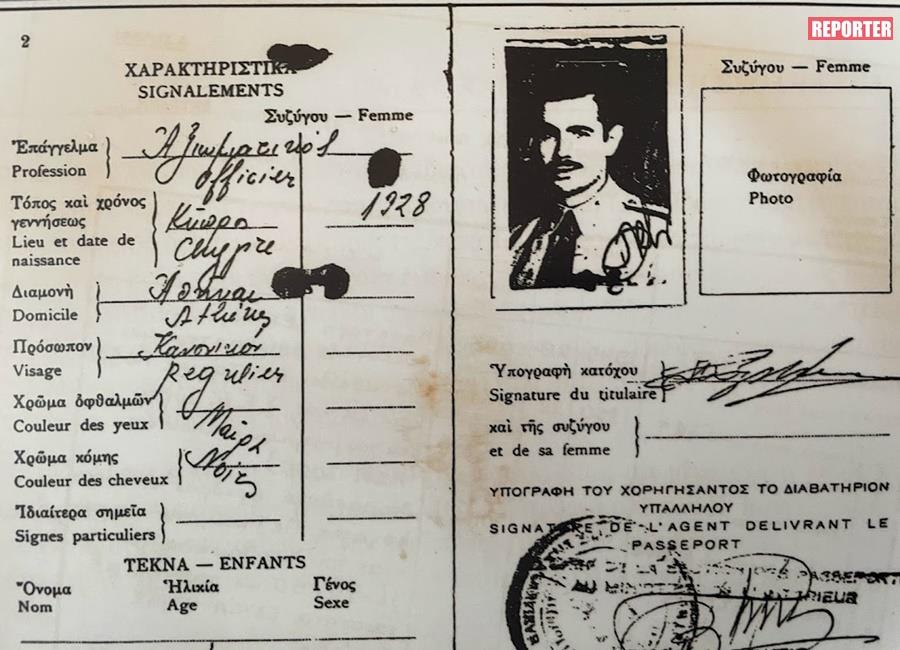 REPORTER
2
ΧΑΡΑΚΤΗΡΙΣΤΙΚΑ
SIGNALEMENTS
Συζύγου — Femme
Ἐπάγγελμα
Ἀξιωματικός
Profession
Officier
Τόπος καὶ χρόνος
γεννήσεως
Κύπρο
1928
Lieu et date de
naissance
Chypre
Διαμονὴ
Ἀθῆναι
Domicile
Athènes
Πρόσωπον
Κανονικόν
Visage
Regulier
Χρῶμα ὀφθαλμῶν
Couleur des yeux
Μαύρ
Χρῶμα κόμης
Noir
Couleur des cheveux
Ἰδιαίτερα σημεῖα
Signes particuliers
ΤΕΚΝΑ — ENFANTS
Ὄνομα Ἡλικία Γένος
Nom Age Sexe
Συζύγου — Femme
Φωτογραφία
Photo
Ὑπογραφὴ κατόχου
Signature du titulaire
καὶ τῆς συζύγου
et de sa femme
ΥΠΟΓΡΑΦΗ ΤΟΥ ΧΟΡΗΓΗΣΑΝΤΟΣ ΤΟ ΔΙΑΒΑΤΗΡΙΟΝ
ΥΠΑΛΛΗΛΟΥ
SIGNATURE DE L'AGENT DELIVRANT LE
PASSEPORT
PASSEPORT